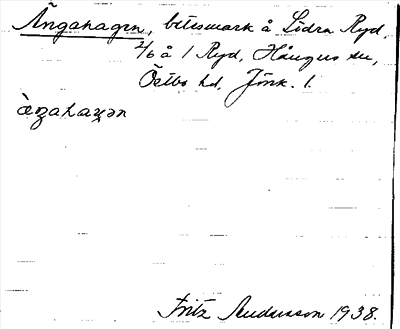 Ängahagen, betesmark å Södra Ryd,
2/6 å 1 Ryd, Hånger sn,
Östbo hd, Jönk. l.
àŋahaɣən
Fritz Andersson 1938.